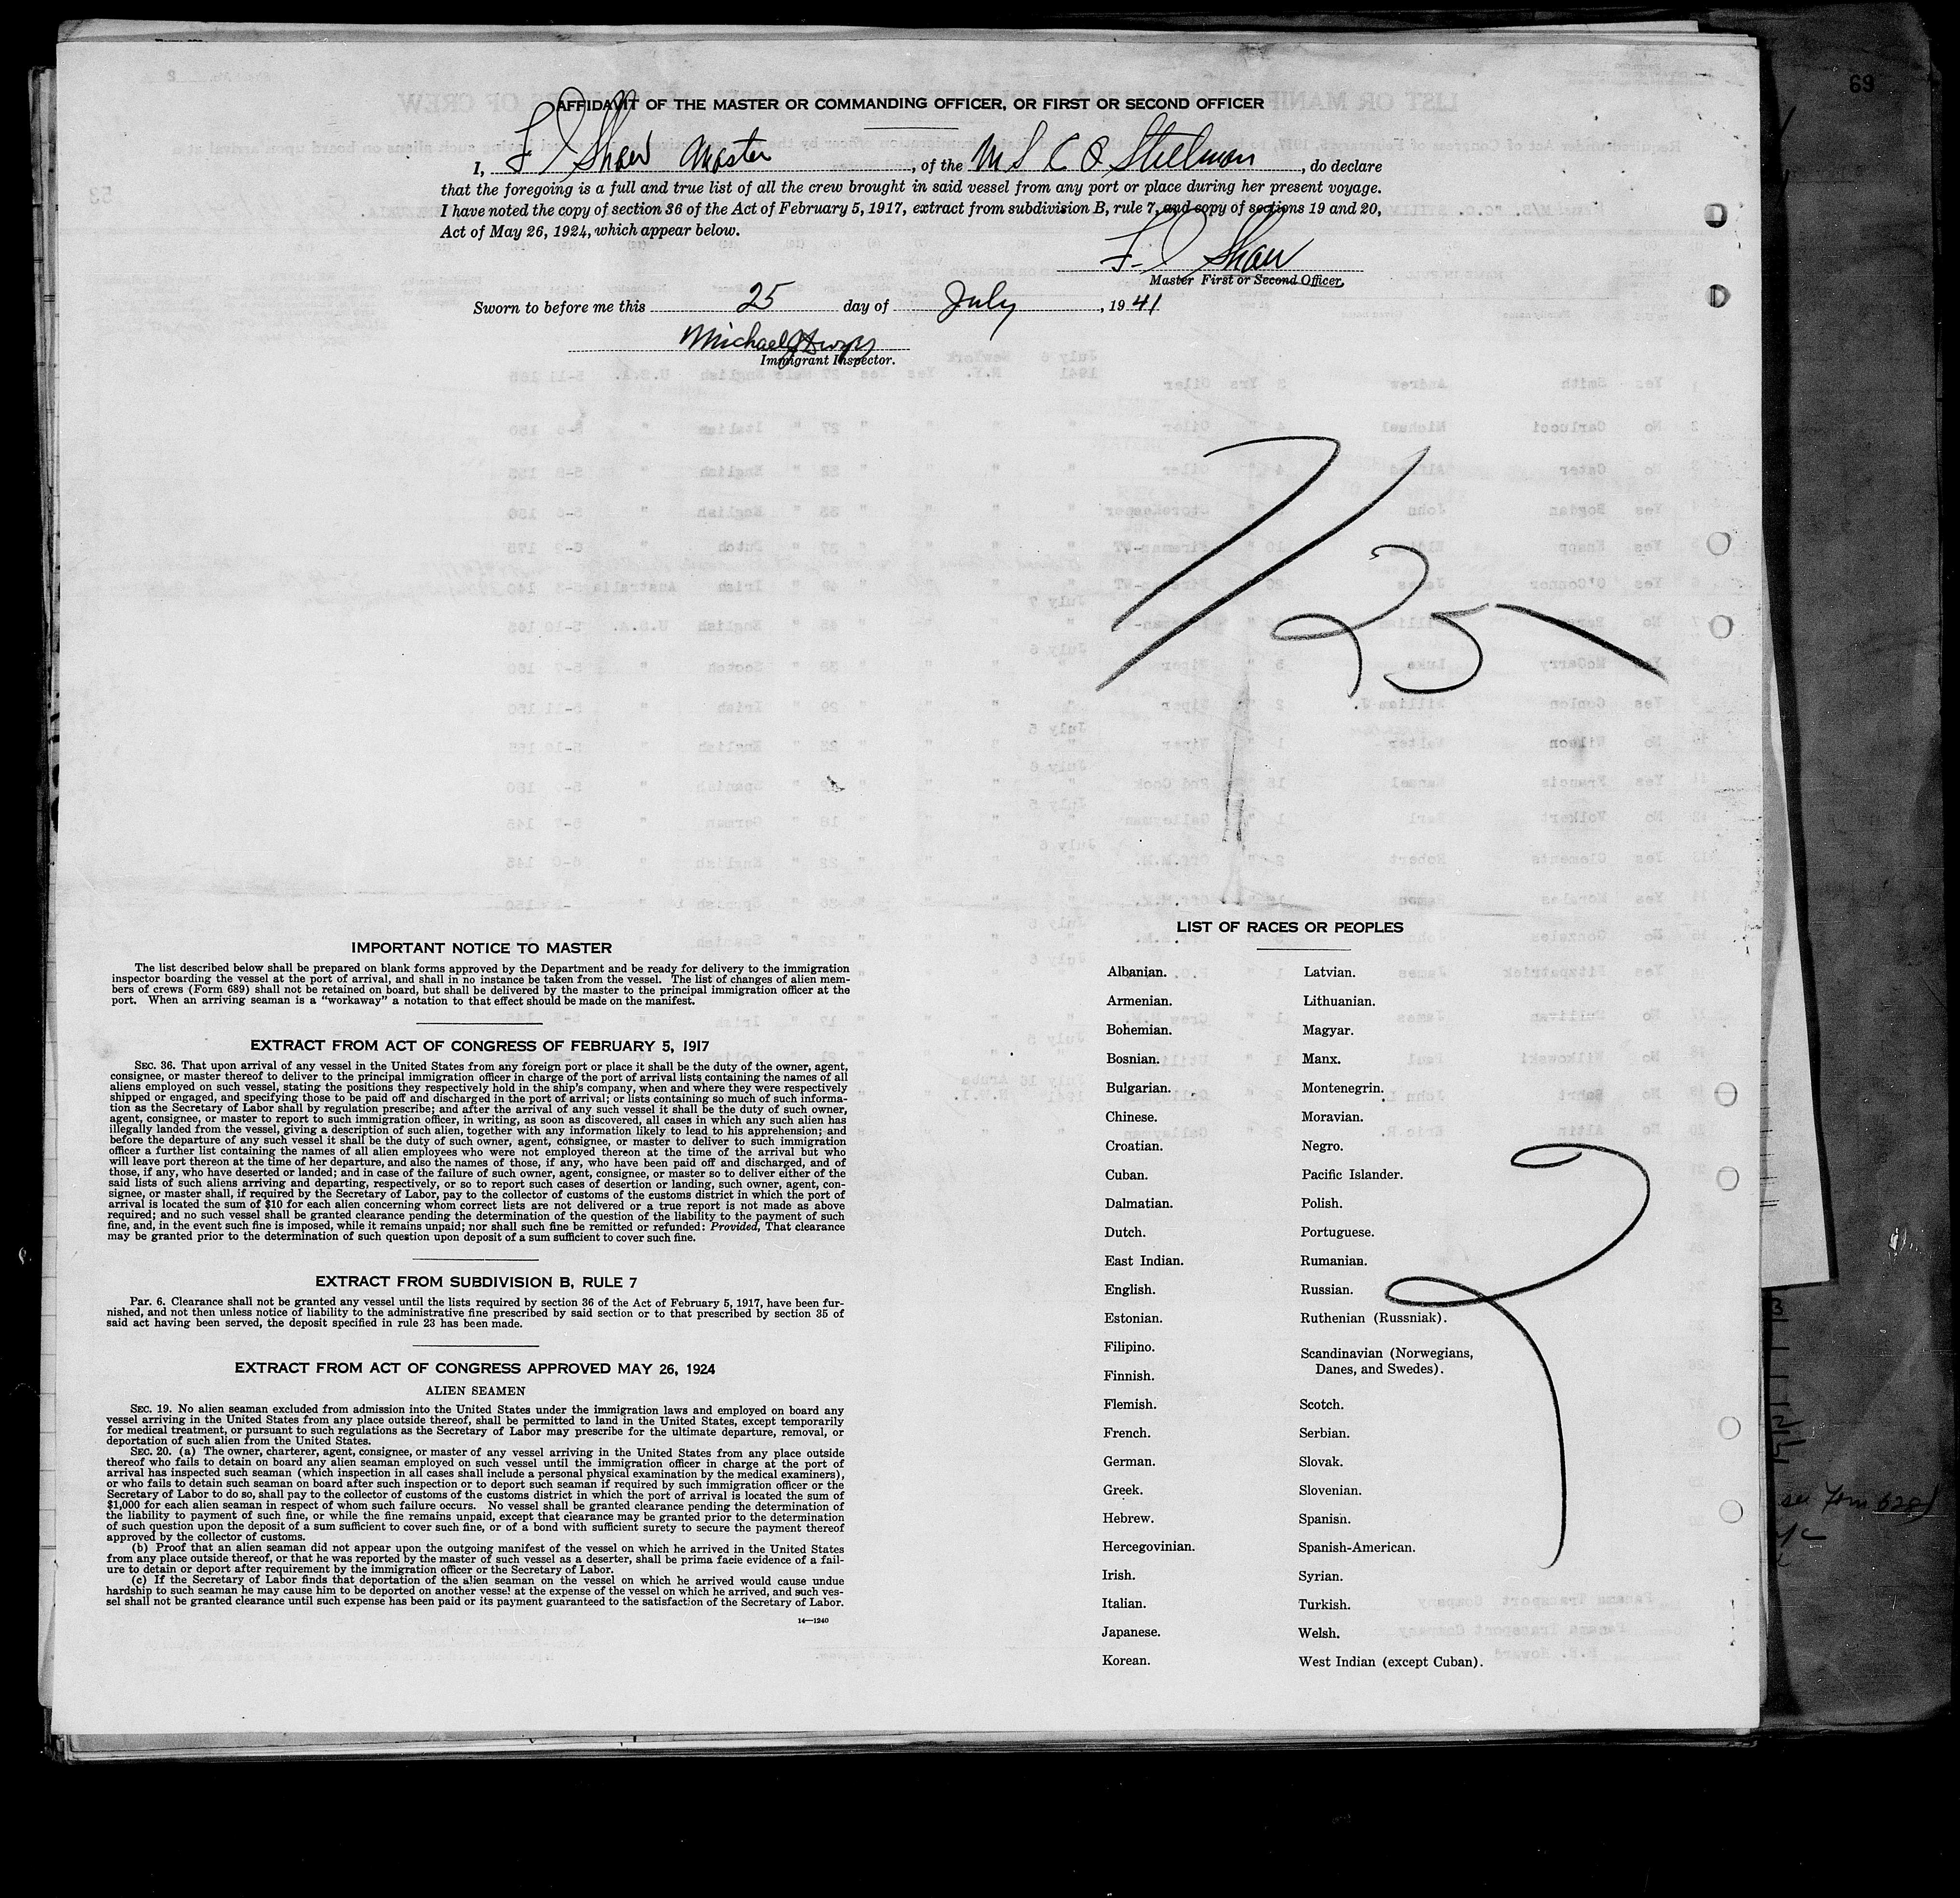 69
AFFIDAVIT OF THE MASTER OR COMMANDING OFFICER, OR FIRST OR SECOND OFFICER
I, F I Shaw Master, of the M S C O Stillman, do declare
that the foregoing is a full and true list of all the crew brought in said vessel from any port or place during her present voyage.
I have noted the copy of section 36 of the Act of February 5, 1917, extract from subdivision B, rule 7, and copy of sections 19 and 20,
Act of May 26, 1924, which appear below.
F. I Shaw
Master First or Second Officer.
Sworn to before me this 25 day of July, 1941
Michael
Immigrant Inspector.
7/25
IMPORTANT NOTICE TO MASTER
The list described below shall be prepared on blank forms approved by the Department and be ready for delivery to the immigration
inspector boarding the vessel at the port of arrival, and shall in no instance be taken from the vessel. The list of changes of alien mem-
bers of crews (Form 689) shall not be retained on board, but shall be delivered by the master to the principal immigration officer at the
port. When an arriving seaman is a “workaway” a notation to that effect should be made on the manifest.
EXTRACT FROM ACT OF CONGRESS OF FEBRUARY 5, 1917
SEC. 36. That upon arrival of any vessel in the United States from any foreign port or place it shall be the duty of the owner, agent,
consignee, or master thereof to deliver to the principal immigration officer in charge of the port of arrival lists containing the names of all
aliens employed on such vessel, stating the positions they respectively hold in the ship's company, when and where they were respectively
shipped or engaged, and specifying those to be paid off and discharged in the port of arrival; or lists containing so much of such informa-
tion as the Secretary of Labor shall by regulation prescribe; and after the arrival of any such vessel it shall be the duty of such owner,
agent, consignee, or master to report to such immigration officer, in writing, as soon as discovered, all cases in which any such alien has
illegally landed from the vessel, giving a description of such alien, together with any information likely to lead to his apprehension; and
before the departure of any such vessel it shall be the duty of such owner, agent, consignee, or master to deliver to such immigration
officer a further list containing the names of all alien employees who were not employed thereon at the time of the arrival but who
will leave port thereon at the time of her departure, and also the names of those, if any, who have been paid off and discharged, and of
those, if any, who have deserted or landed; and in case of the failure of such owner, agent, consignee, or master so to deliver either of the
said lists of such aliens arriving and departing, respectively, or so to report such cases of desertion or landing, such owner, agent, con-
signee, or master shall, if required by the Secretary of Labor, pay to the collector of customs of the customs district in which the port of
arrival is located the sum of $10 for each alien concerning whom correct lists are not delivered or a true report is not made as above
required; and no such vessel shall be granted clearance pending the determination of the question of the liability to the payment of such
fine, and, in the event such fine is imposed, while it remains unpaid; nor shall such fine be remitted or refunded: Provided, That clearance
may be granted prior to the determination of such question upon deposit of a sum sufficient to cover such fine.
EXTRACT FROM SUBDIVISION B, RULE 7
Par. 6. Clearance shall not be granted any vessel until the lists required by section 36 of the Act of February 5, 1917, have been fur-
nished, and not then unless notice of liability to the administrative fine prescribed by said section or to that prescribed by section 35 of
said act having been served, the deposit specified in rule 23 has been made.
EXTRACT FROM ACT OF CONGRESS APPROVED MAY 26, 1924
ALIEN SEAMEN
SEC. 19. No alien seaman excluded from admission into the United States under the immigration laws and employed on board any
vessel arriving in the United States from any place outside thereof, shall be permitted to land in the United States, except temporarily
for medical treatment, or pursuant to such regulations as the Secretary of Labor may prescribe for the ultimate departure, removal, or
deportation of such alien from the United States.
SEC. 20. (a) The owner, charterer, agent, consignee, or master of any vessel arriving in the United States from any place outside
thereof who fails to detain on board any alien seaman employed on such vessel until the immigration officer in charge at the port of
arrival has inspected such seaman (which inspection in all cases shall include a personal physical examination by the medical examiners),
or who fails to detain such seaman on board after such inspection or to deport such seaman if required by such immigration officer or the
Secretary of Labor to do so, shall pay to the collector of customs of the customs district in which the port of arrival is located the sum of
$1,000 for each alien seaman in respect of whom such failure occurs. No vessel shall be granted clearance pending the determination of
the liability to payment of such fine, or while the fine remains unpaid, except that clearance may be granted prior to the determination
of such question upon the deposit of a sum sufficient to cover such fine, or of a bond with sufficient surety to secure the payment thereof
approved by the collector of customs.
(b) Proof that an alien seaman did not appear upon the outgoing manifest of the vessel on which he arrived in the United States
from any place outside thereof, or that he was reported by the master of such vessel as a deserter, shall be prima facie evidence of a fail-
ure to detain or deport after requirement by the immigration officer or the Secretary of Labor.
(c) If the Secretary of Labor finds that deportation of the alien seaman on the vessel on which he arrived would cause undue
hardship to such seaman he may cause him to be deported on another vessel at the expense of the vessel on which he arrived, and such ves-
sel shall not be granted clearance until such expense has been paid or its payment guaranteed to the satisfaction of the Secretary of Labor.
14—1240
LIST OF RACES OR PEOPLES
Albanian.
Armenian.
Bohemian.
Bosnian.
Bulgarian.
Chinese.
Croatian.
Cuban.
Dalmatian.
Dutch.
East Indian.
English.
Estonian.
Filipino.
Finnish.
Flemish.
French.
German.
Greek.
Hebrew.
Hercegovinian.
Irish.
Italian.
Japanese.
Korean.
Latvian.
Lithuanian.
Magyar.
Manx.
Montenegrin.
Moravian.
Negro.
Pacific Islander.
Polish.
Portuguese.
Rumanian.
Russian.
Ruthenian (Russniak).
Scandinavian (Norwegians,
Danes, and Swedes).
Scotch.
Serbian.
Slovak.
Slovenian.
Spanish.
Spanish-American.
Syrian.
Turkish.
Welsh.
West Indian (except Cuban).